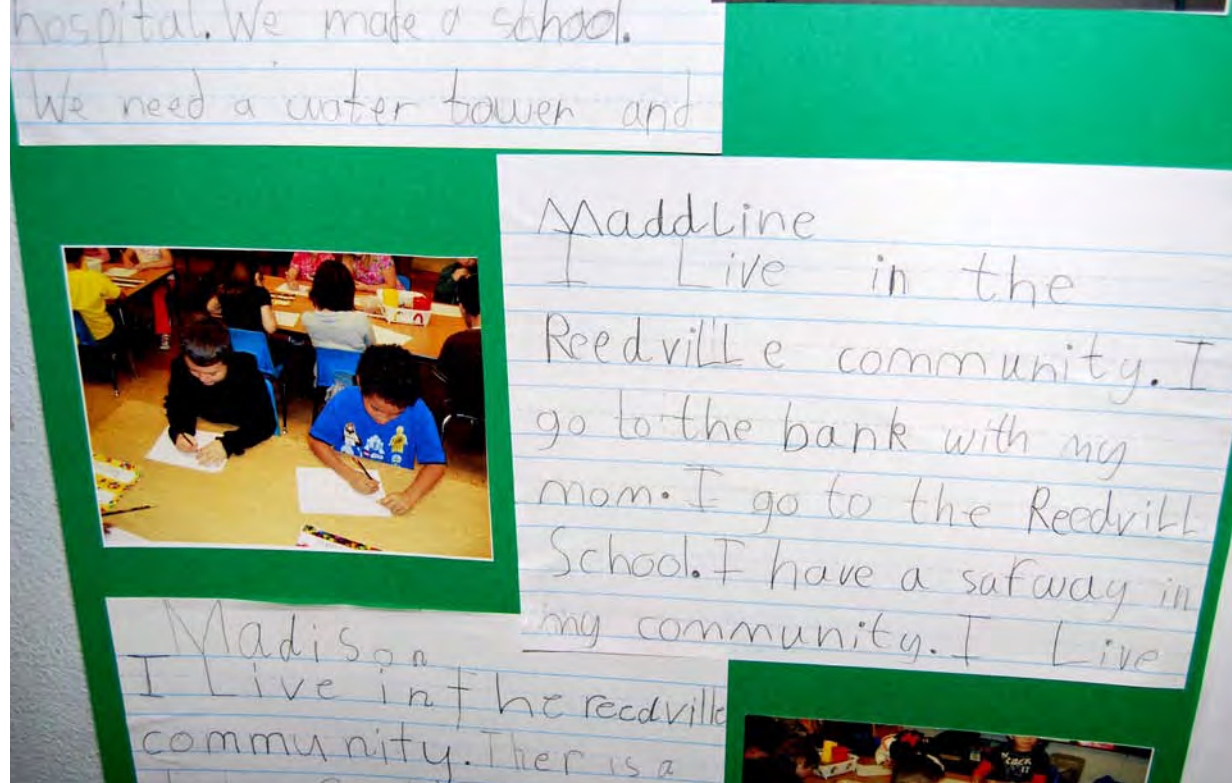 hospital. We made a school.
We need a water tower and
MaddLine
I Live in the
ReedvilLe community. I
go to the bank with my
mom. I go to the ReedvilL
School. I have a safway in
my community. I Live
Madison
I Live in the reedville
community. Ther is a